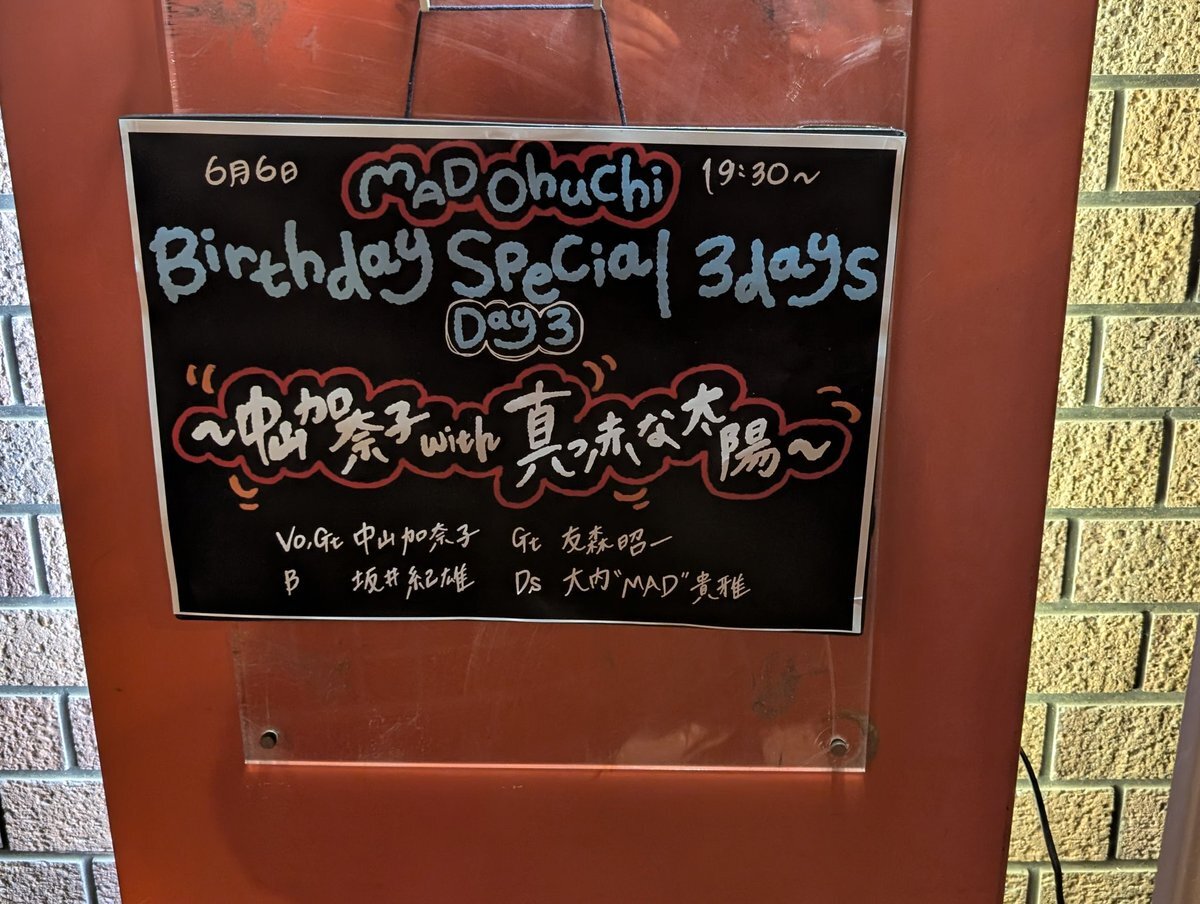 6月6日 MAD Ohuchi 19:30〜
Birthday Special 3days
Day3
〜中山加奈子 with 真っ赤な太陽〜
Vo,Gt 中山加奈子 Gt 友森昭一
B 坂井紀雄 Ds 大内"MAD"貴雅